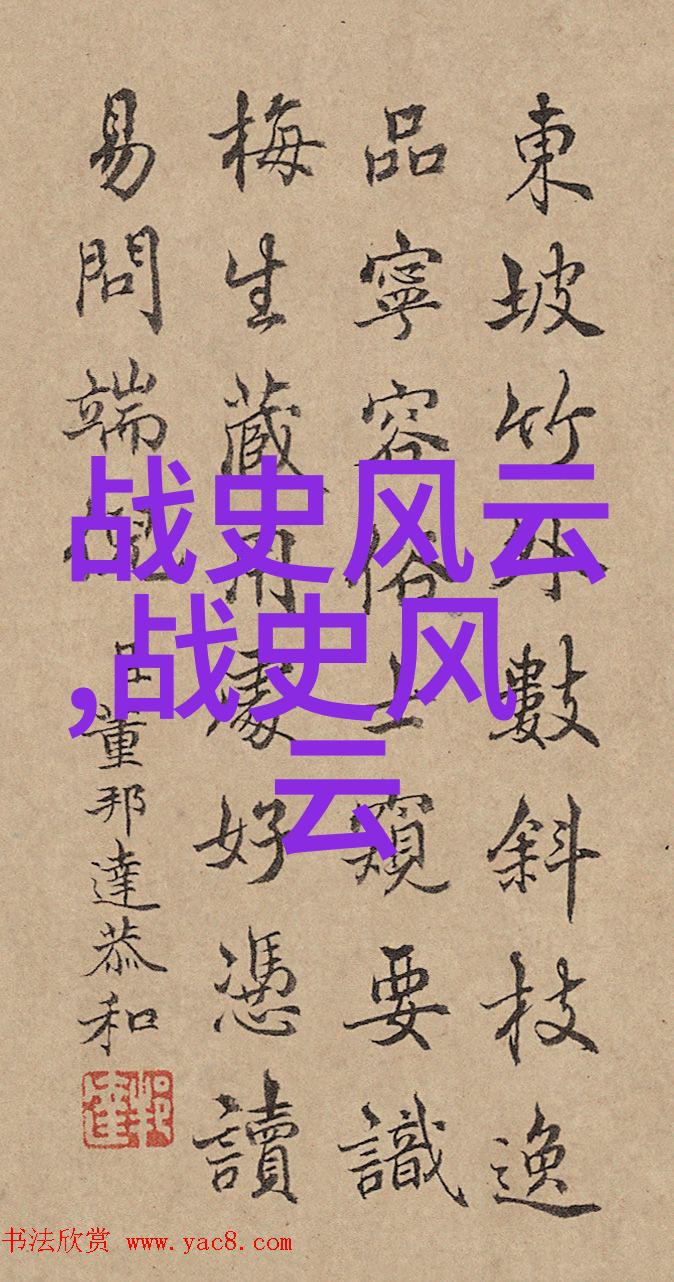 東坡竹外數斜枝逸
品寧容俗士窺要識
梅生藏用處好憑讀
易問端
臣董邦達恭和
战史风云
,战史风
云
书法欣赏 www.yac8.com